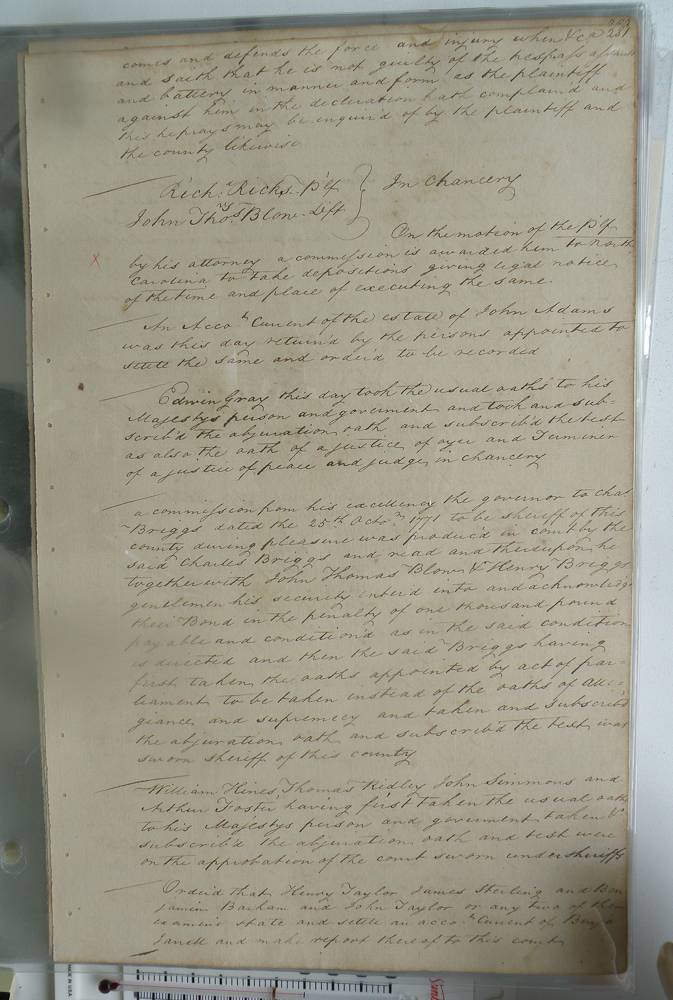 253
comes and defends the force and injury when &c a 251
and saith that he is not guilty of the trespass assault
and battery in manner and form as the plaintiff
against him in the declaration hath complaind and
this he prays may be enquird of by the plaintiff and
the county likewise
Richd. Ricks Plf } In Chancery
John Thos. Blow Deft
On the motion of the Plf
by his attorney a commission is awarded him to North
Carolina to take depositions giving legal notice
of the time and place of executing the same
An Acco. Current of the estate of John Adams
was this day return'd by the persons appointed to
settle the same and orderd to be recorded
Edwin Gray this day took the usual oaths to his
Majestys person and government and took and sub-
scrib'd the abjuration oath and subscrib'd the test
as also the oath of a justice of oyer and Terminer
of a justice of peace and judge in chancery
a commission from his excellency the governor to Chas
Briggs dated the 25th Octo. 1771 to be sheriff of this
county during pleasure was produc'd in court by the
said Charles Briggs and read and thereupon he
together with John Thomas Blow & Henry Briggs
gentlemen his security enterd into and acknowledg
their Bond in the penalty of one thousand pound
payable and condition'd as in the said condition
is directed and then the said Briggs having
first taken the oaths appointed by act of par-
liament to be taken instead of the oaths of alle-
giance and supremecy and taken and subscrib'd
the abjuration oath and subscrib'd the test was
sworn sheriff of this county
William Hines Thomas Ridley John Simmons and
Arthur Foster having first taken the usual oath
to his Majestys person and government taken &
subscrib'd the abjuration oath and test were
on the approbation of the court sworn undersheriffs
Orderd that Henry Taylor James Sterling and Ben
jamin Barham and John Taylor or any two of them
examine state and settle an acco. Current of
and make report thereof to this court
MADE IN USA